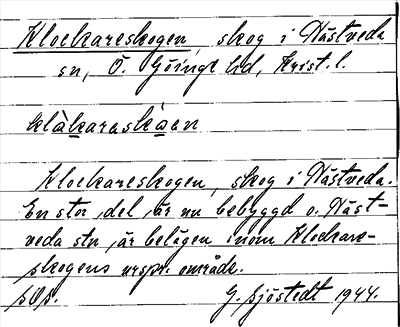 Klockareskogen, skog i Nästveda
sn, Ö. Göinge hd, Krist. l.
klàkaraskåen
Klockareskogen, skog i Nästveda.
En stor del är nu bebyggd o. Näst-
veda stn är belägen inom Klockare-
skogens urspr. område.
G. Sjöstedt 1944.